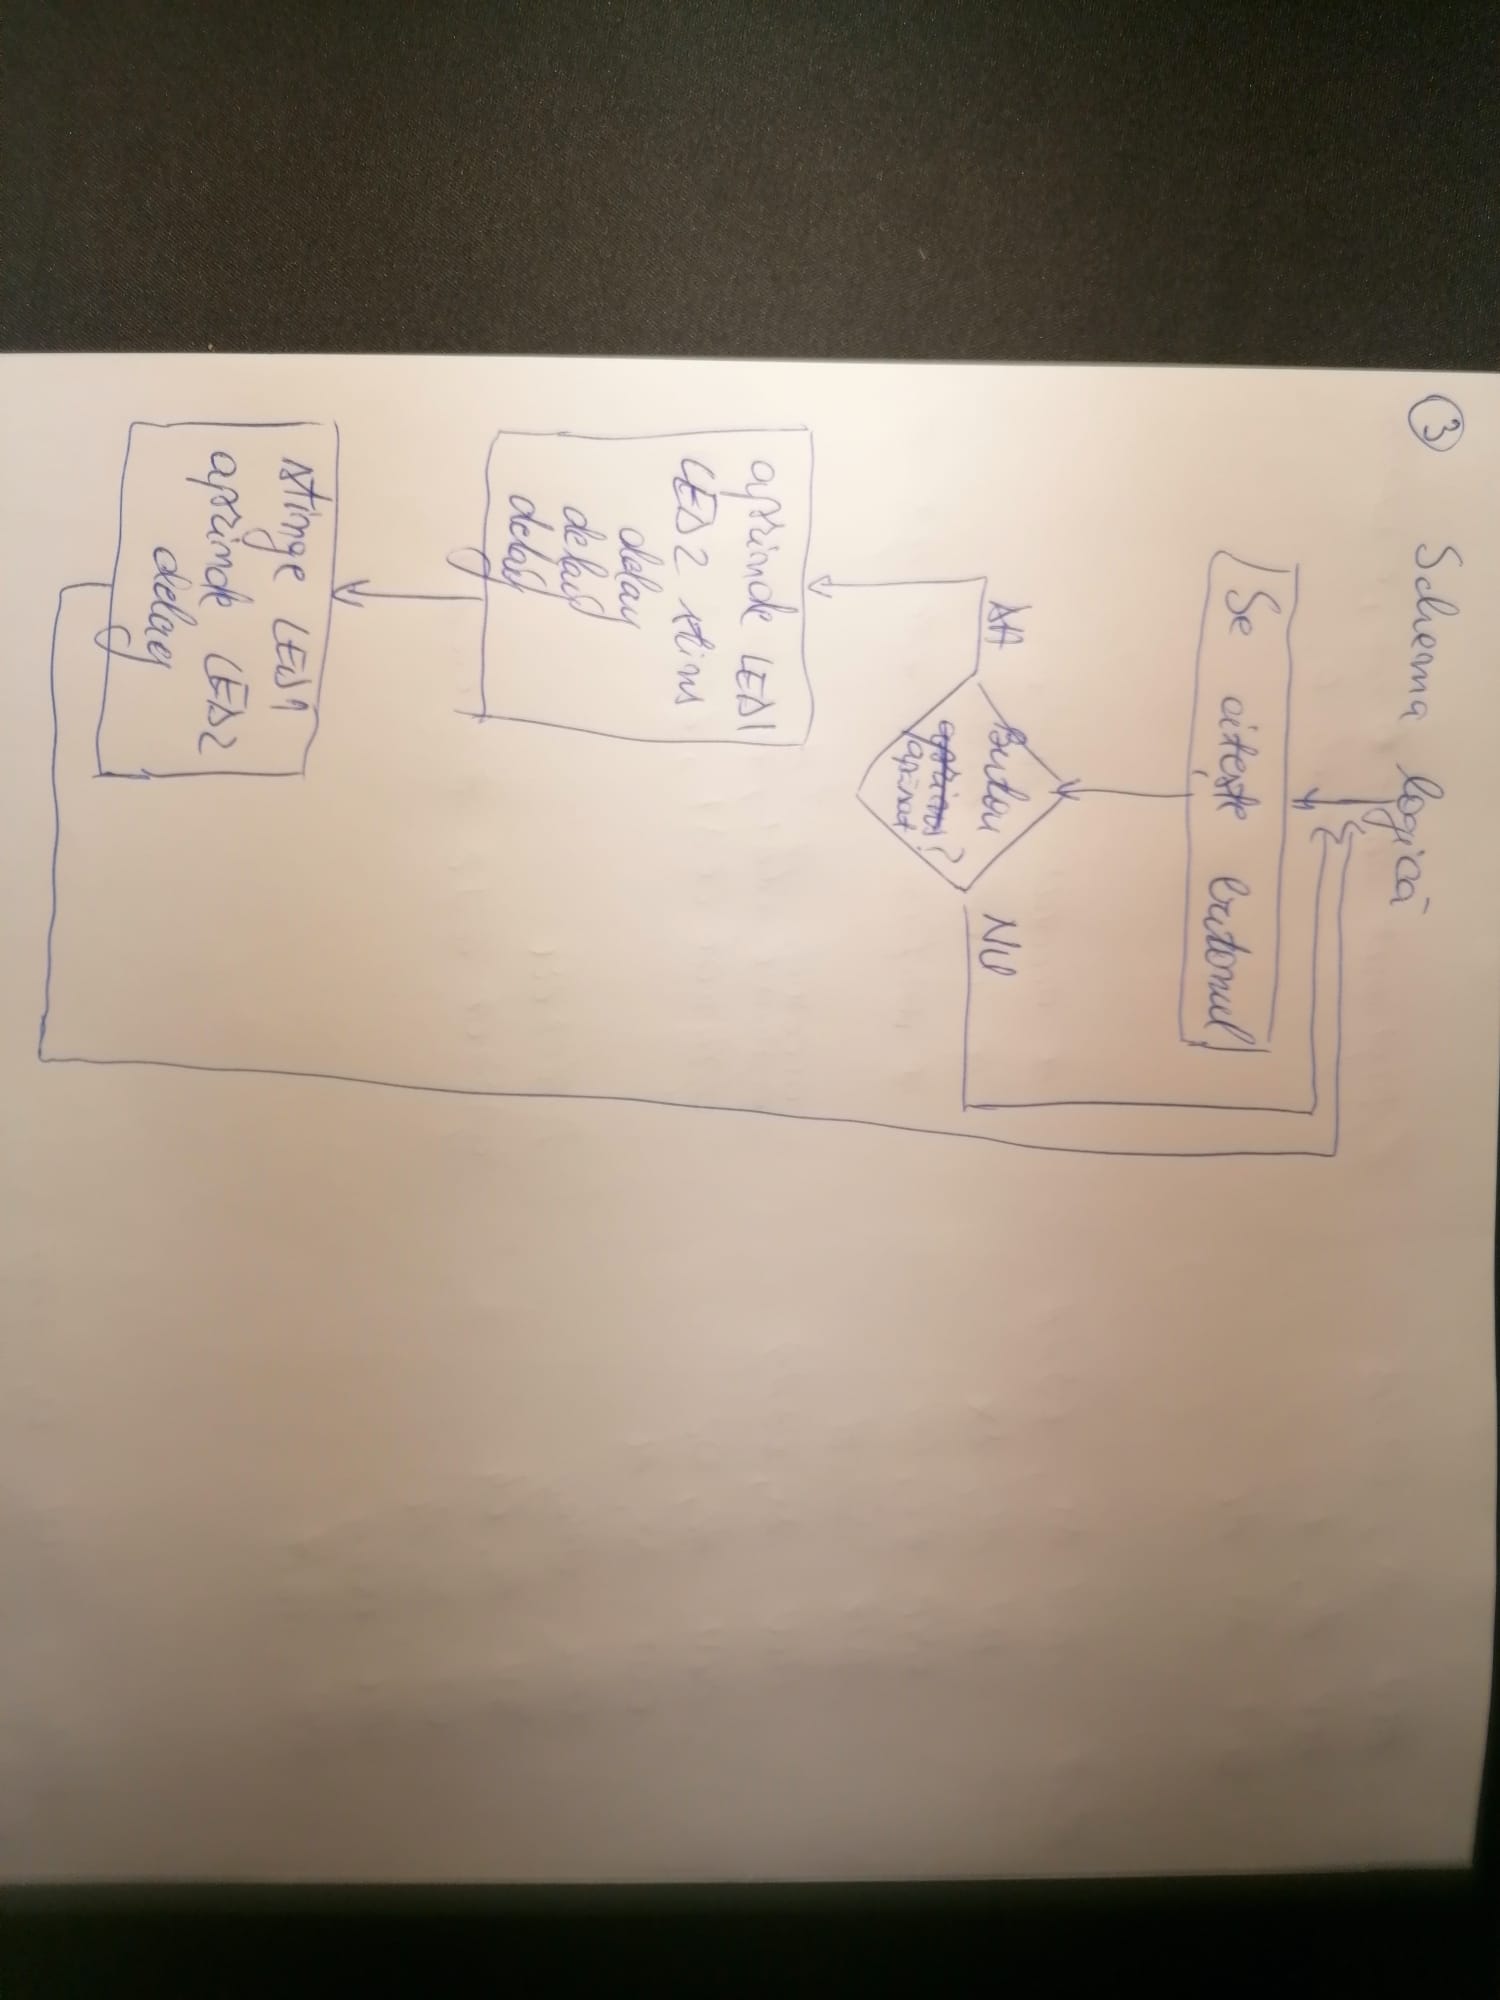 3 Schema logică
Se citește butonul
DA
Buton
NU
aprins?
apăsat
aprinde LED1
LED2 stins
delay
delay
delay
stinge LED1
aprinde LED2
delay